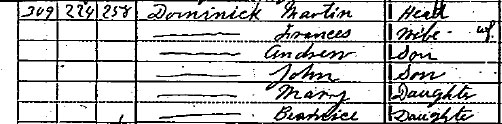 309 224 258 Dominick Martin Head
—— Frances Wife wf.
—— Andrew Son
—— John Son
—— Mary Daughter
—— Beatrice Daughter